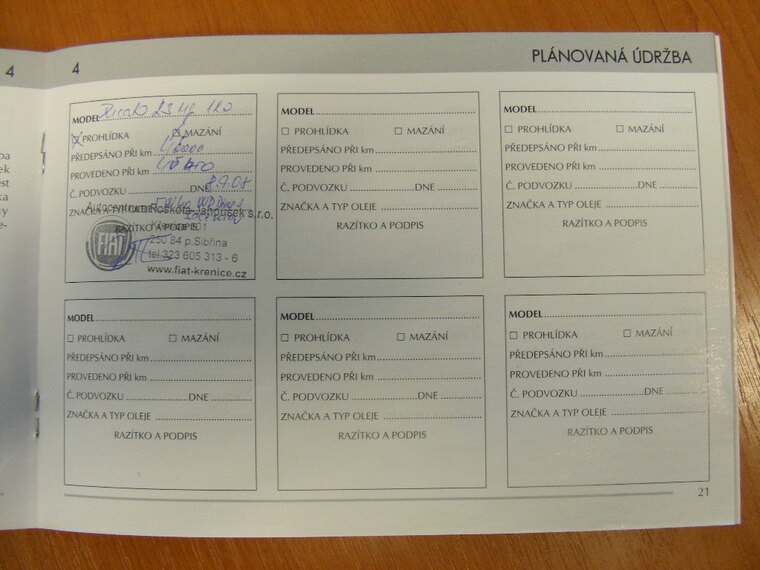 4
4
PLÁNOVANÁ ÚDRŽBA
MODEL Ducato 2.3 120
PROHLÍDKA MAZÁNÍ
PŘEDEPSÁNO PŘI km
PROVEDENO PŘI km
Č. PODVOZKU DNE 8.9.08
ZNAČKA A TYP OLEJE
Autocentrum Janoušek s.r.o.
RAZÍTKO A PODPIS
FIAT
250 84 p.Sibřina
tel.323 605 313 - 6
www.fiat-krenice.cz
MODEL
PROHLÍDKA MAZÁNÍ
PŘEDEPSÁNO PŘI km
PROVEDENO PŘI km
Č. PODVOZKU DNE
ZNAČKA A TYP OLEJE
RAZÍTKO A PODPIS
MODEL
PROHLÍDKA MAZÁNÍ
PŘEDEPSÁNO PŘI km
PROVEDENO PŘI km
Č. PODVOZKU DNE
ZNAČKA A TYP OLEJE
RAZÍTKO A PODPIS
MODEL
PROHLÍDKA MAZÁNÍ
PŘEDEPSÁNO PŘI km
PROVEDENO PŘI km
Č. PODVOZKU DNE
ZNAČKA A TYP OLEJE
RAZÍTKO A PODPIS
MODEL
PROHLÍDKA MAZÁNÍ
PŘEDEPSÁNO PŘI km
PROVEDENO PŘI km
Č. PODVOZKU DNE
ZNAČKA A TYP OLEJE
RAZÍTKO A PODPIS
MODEL
PROHLÍDKA MAZÁNÍ
PŘEDEPSÁNO PŘI km
PROVEDENO PŘI km
Č. PODVOZKU DNE
ZNAČKA A TYP OLEJE
RAZÍTKO A PODPIS
21